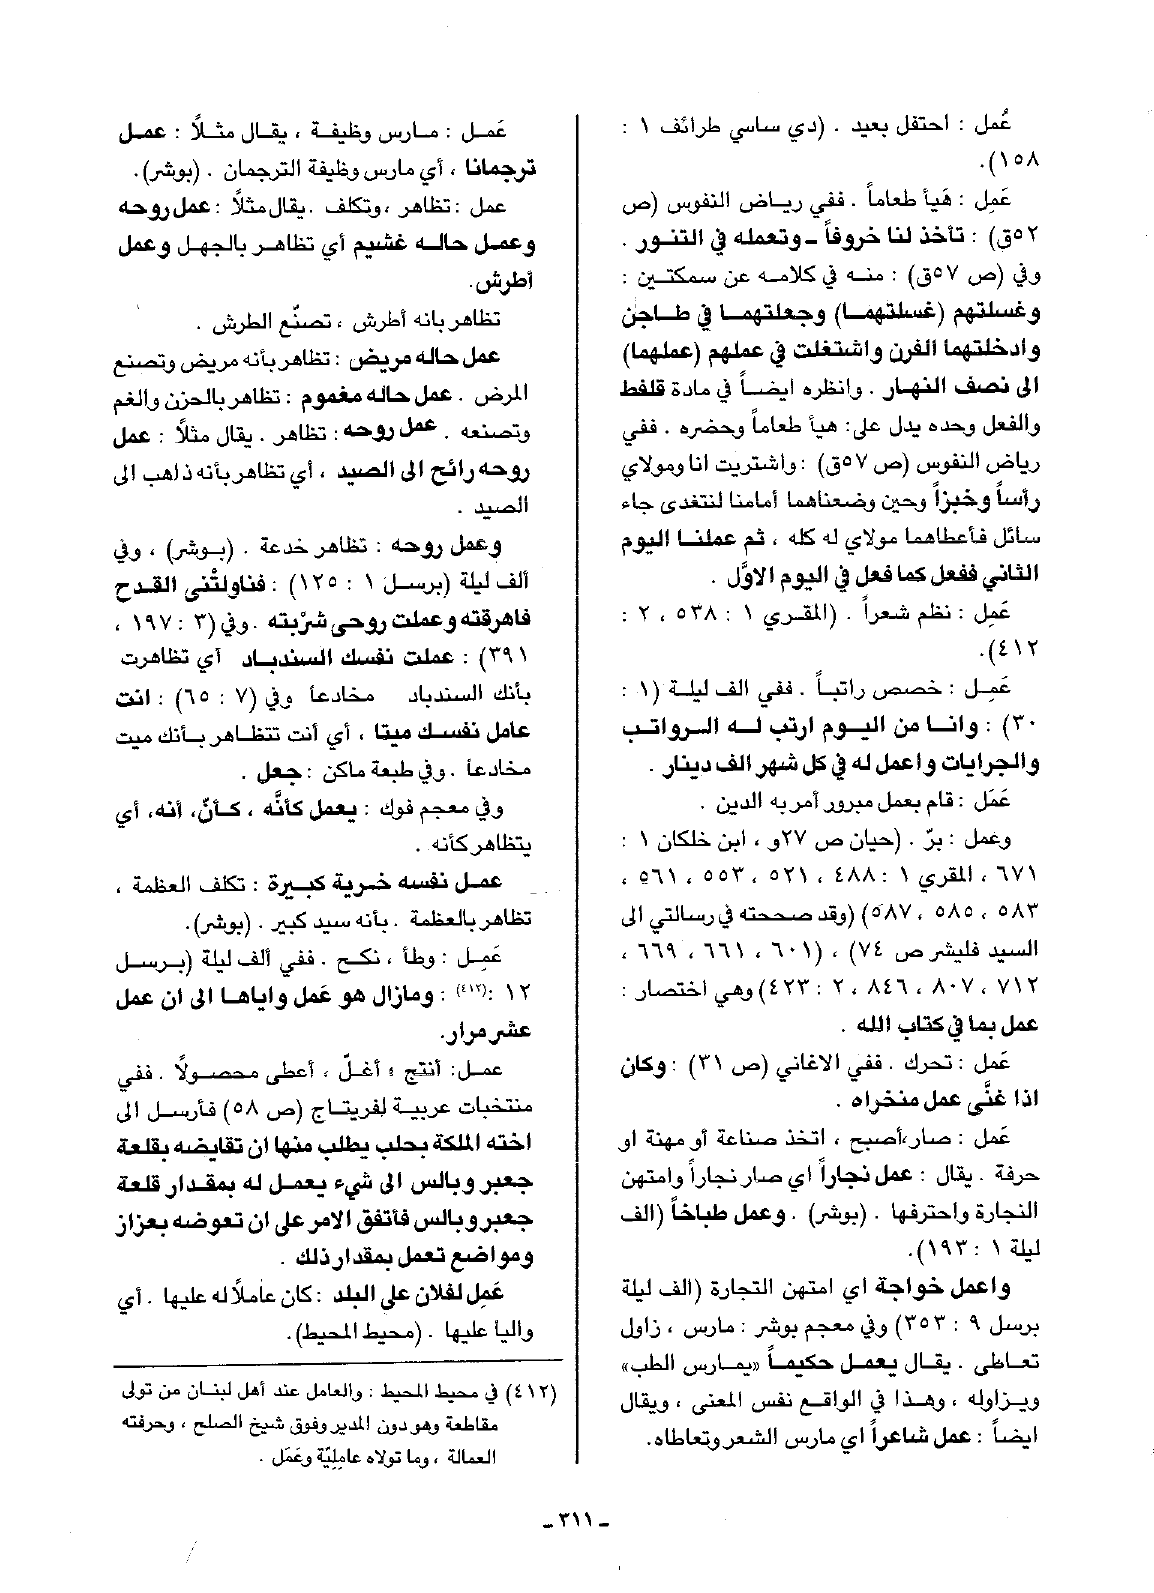 عُمل : احتفل بعيد . (دي ساسي طرائف ١ :
١٥٨).
عَمِل : هَيأ طعاماً . ففي رياض النفوس (ص
٥٢ق) : تأخذ لنا خروفاً – وتعمله في التنور .
وفي (ص ٥٧ق) : منه في كلامه عن سمكتين :
وغسلتهم (غسلتهما) وجعلتهما في طاجن
وادخلتهما الفرن واشتغلت في عملهم (عملهما)
الى نصف النهار . وانظره ايضاً في مادة قلفط
والفعل وحده يدل على : هيأ طعاماً وحضره . ففي
رياض النفوس (ص ٥٧ق) : واشتريت انا ومولاي
رأساً وخبزاً وحين وضعناهما أمامنا لنتغدى جاء
سائل فأعطاهما مولاي له كله ، ثم عملنا اليوم
الثاني ففعل كما فعل في اليوم الاوّل .
عَمِل : نظم شعراً . (المقري ١ : ٥٣٨ ، ٢ :
٤١٢).
عَمِل : خصص راتباً . ففي الف ليلة (١ :
٣٠) : وانا من اليوم ارتب له الرواتب
والجرايات واعمل له في كل شهر الف دينار .
عَمَل : قام بعمل مبرور أمر به الدين .
وعمل : برّ . (حيان ص ٢٧و ، ابن خلكان ١ :
٦٧١ ، المقري ١ : ٤٨٨ ، ٥٢١ ، ٥٥٣ ، ٥٦١ ،
٥٨٣ ، ٥٨٥ ، ٥٨٧) (وقد صححته في رسالتي الى
السيد فليشر ص ٧٤) ، (٦٠١ ، ٦٦١ ، ٦٦٩ ،
٧١٢ ، ٨٠٧ ، ٨٤٦ ، ٢ : ٤٢٣) وهي اختصار :
عمل بما في كتاب الله .
عَمل : تحرك . ففي الاغاني (ص ٣١) : وكان
اذا غنَّى عمل منخراه .
عَمل : صار، أصبح ، اتخذ صناعة أو مهنة او
حرفة . يقال : عمل نجاراً اي صار نجاراً وامتهن
النجارة واحترفها . (بوشر) . وعمل طباخاً (الف
ليلة ١ : ١٩٣).
واعمل خواجة اي امتهن التجارة (الف ليلة
برسل ٩ : ٣٥٣) وفي معجم بوشر : مارس ، زاول
تعاطى . يقال يعمل حكيماً «يمارس الطب»
ويزاوله ، وهذا في الواقع نفس المعنى ، ويقال
ايضاً : عمل شاعراً اي مارس الشعر وتعاطاه.
عَمل : مارس وظيفة ، يقال مثلاً : عمل
ترجمانا ، أي مارس وظيفة الترجمان . (بوشر).
عمل : تظاهر ، وتكلف . يقال مثلاً : عمل روحه
وعمل حاله غشيم أي تظاهر بالجهل وعمل
أطرش.
تظاهر بانه أطرش ، تصنّع الطرش .
عمل حاله مريض : تظاهر بأنه مريض وتصنع
المرض . عمل حاله مغموم : تظاهر بالحزن والغم
وتصنعه . عمل روحه : تظاهر . يقال مثلاً : عمل
روحه رائح الى الصيد ، أي تظاهر بأنه ذاهب الى
الصيد .
وعمل روحه : تظاهر خدعة . (بوشر) ، وفي
ألف ليلة (برسل ١ : ١٢٥) : فناولتُني القدح
فاهرقته وعملت روحي شرْبته . وفي (٣ : ١٩٧ ،
٣٩١) : عملت نفسك السندباد أي تظاهرت
بأنك السندباد مخادعا وفي (٧ : ٦٥) : انت
عامل نفسك ميتا ، أي أنت تتظاهر بأنك ميت
مخادعا . وفي طبعة ماكن : جعل .
وفي معجم فوك : يعمل كأنَّه ، كأنّ، أنه، أي
يتظاهر كأنه .
عمل نفسه خرية كبيرة : تكلف العظمة ،
تظاهر بالعظمة . بأنه سيد كبير . (بوشر).
عَمِل : وطأ ، نكح . ففي ألف ليلة (برسل
١٢ :(٤١٢) : ومازال هو عَمل واياها الى ان عمل
عشر مرار.
عمل : أنتج ؛ أغلّ ، أعطى محصولاً . ففي
منتخبات عربية لفريتاج (ص ٥٨) فأرسل الى
اخته الملكة بحلب يطلب منها ان تقايضه بقلعة
جعبر وبالس الى شيء يعمل له بمقدار قلعة
جعبر وبالس فأتفق الامر على ان تعوضه بعزاز
ومواضع تعمل بمقدار ذلك .
عَمِل لفلان على البلد : كان عاملاً له عليها . أي
واليا عليها . (محيط المحيط).
(٤١٢) في محيط المحيط : والعامل عند أهل لبنان من تولى
مقاطعة وهو دون المدير وفوق شيخ الصلح ، وحرفته
العمالة ، وما تولاه عامليّة وعَمَل .
– ٣١١ –